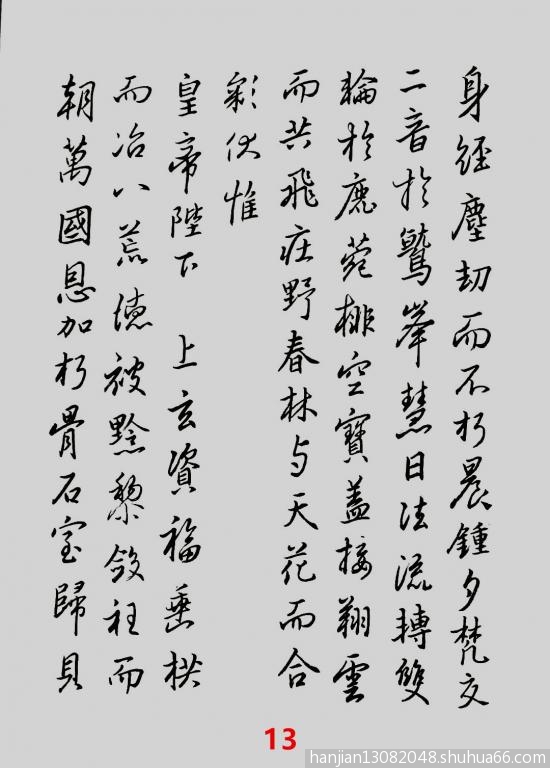 身經塵劫而不朽晨鍾夕梵交
二音於鷲峯慧日法流轉雙
輪於鹿菀排空寶蓋接翔雲
而共飛莊野春林与天花而合
彩伏惟
皇帝陛下 上玄資福垂拱
而治八荒德被黔黎斂衽而
朝萬國恩加朽骨石室歸貝
13
hanjian13082048.shuhua66.com